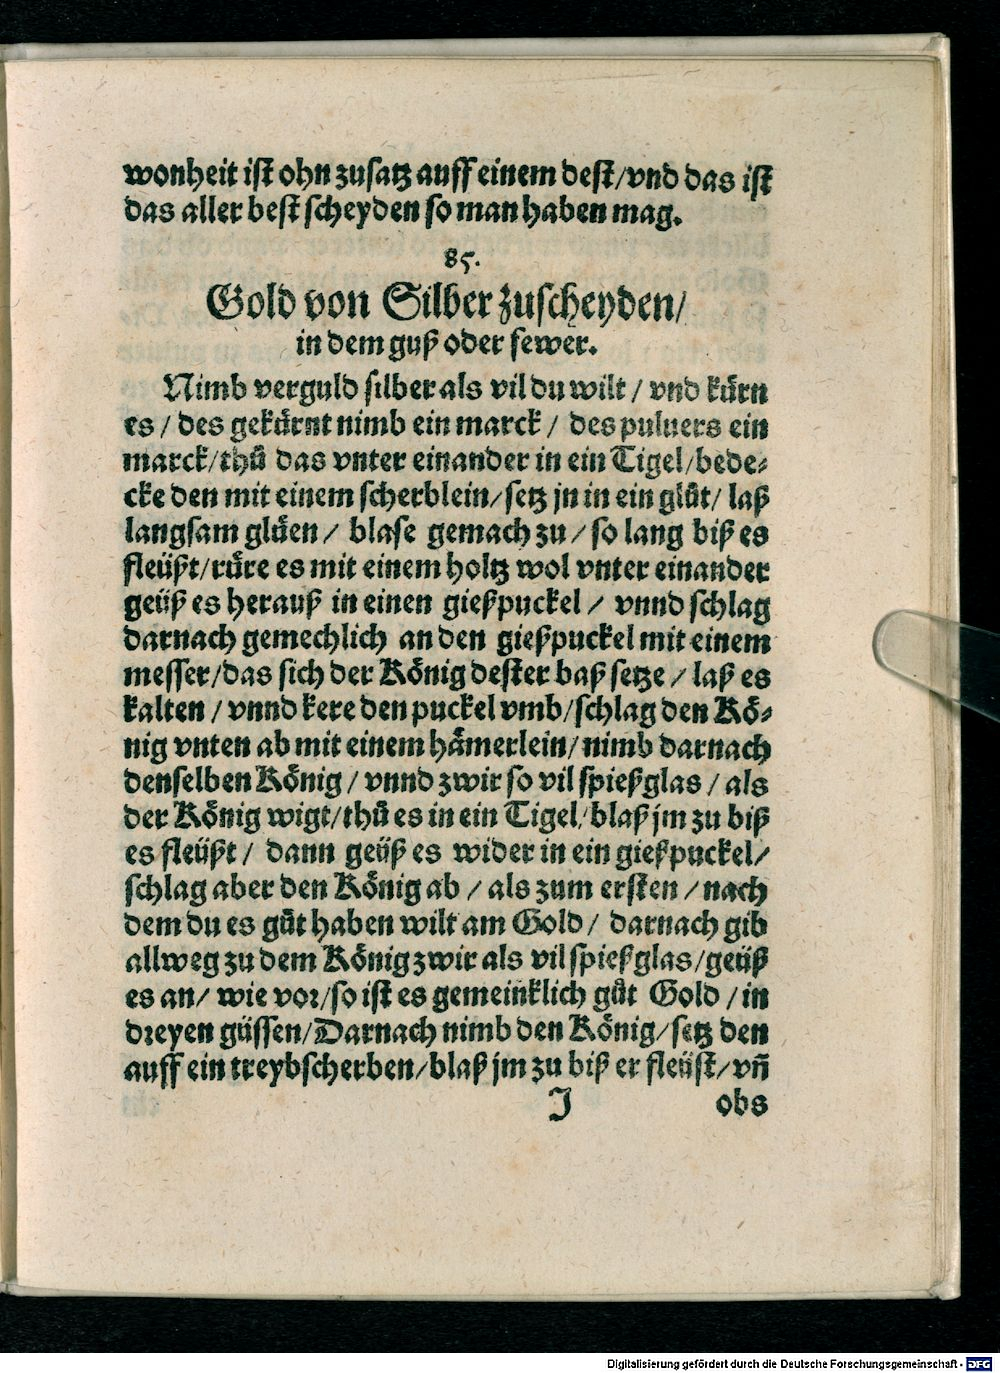 wonheit ist ohn zusatz auff einem dest/vnd das ist
das aller best scheyden so man haben mag.
85.
Gold von Silber zuscheyden/
in dem guß oder fewer.
Nimb verguld silber als vil du wilt / vnd kuͤrn
es / des gekuͤrnt nimb ein marck / des puluers ein
marck/thuͦ das vnter einander in ein Tigel/bede⸗
cke den mit einem scherblein/setz jn in ein gluͦt/ laß
langsam gluͤen / blase gemach zu / so lang biß es
fleüßt/ruͤre es mit einem holtz wol vnter einander
geüß es herauß in einen gießpuckel / vnnd schlag
darnach gemechlich an den gießpuckel mit einem
messer/das sich der Koͤnig dester baß setze / laß es
kalten / vnnd kere den puckel vmb/schlag den Koͤ⸗
nig vnten ab mit einem haͤmerlein/nimb darnach
denselben Koͤnig / vnnd zwir so vil spießglas / als
der Koͤnig wigt/thuͦ es in ein Tigel/blaß jm zu biß
es fleüßt / dann geüß es wider in ein gießpuckel/
schlag aber den Koͤnig ab / als zum ersten / nach
dem du es guͦt haben wilt am Gold / darnach gib
allweg zu dem Koͤnig zwir als vil spießglas/geüß
es an/ wie vor/so ist es gemeinklich guͦt Gold / in
dreyen güssen/Darnach nimb den Koͤnig/setz den
auff ein treybscherben/blaß jm zu biß er fleüst/vñ
J obs
Digitalisierung gefördert durch die Deutsche Forschungsgemeinschaft - DFG